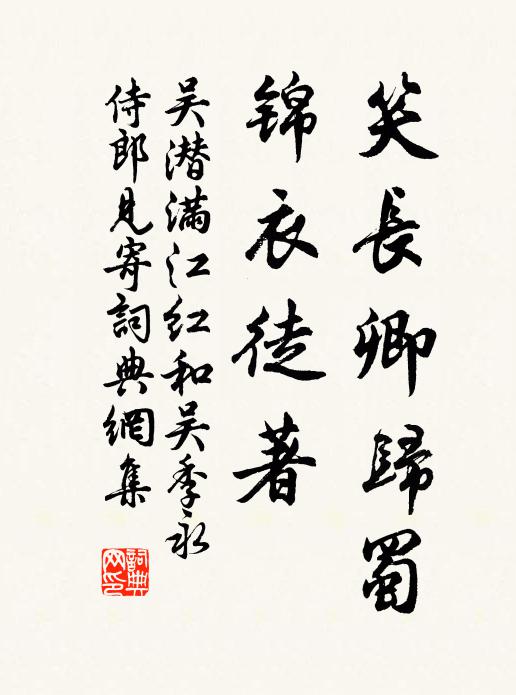 笑長卿歸蜀
錦衣徒著
吴潜滿江红和吴季永
侍郎見寄詞典網集
詞典
网印